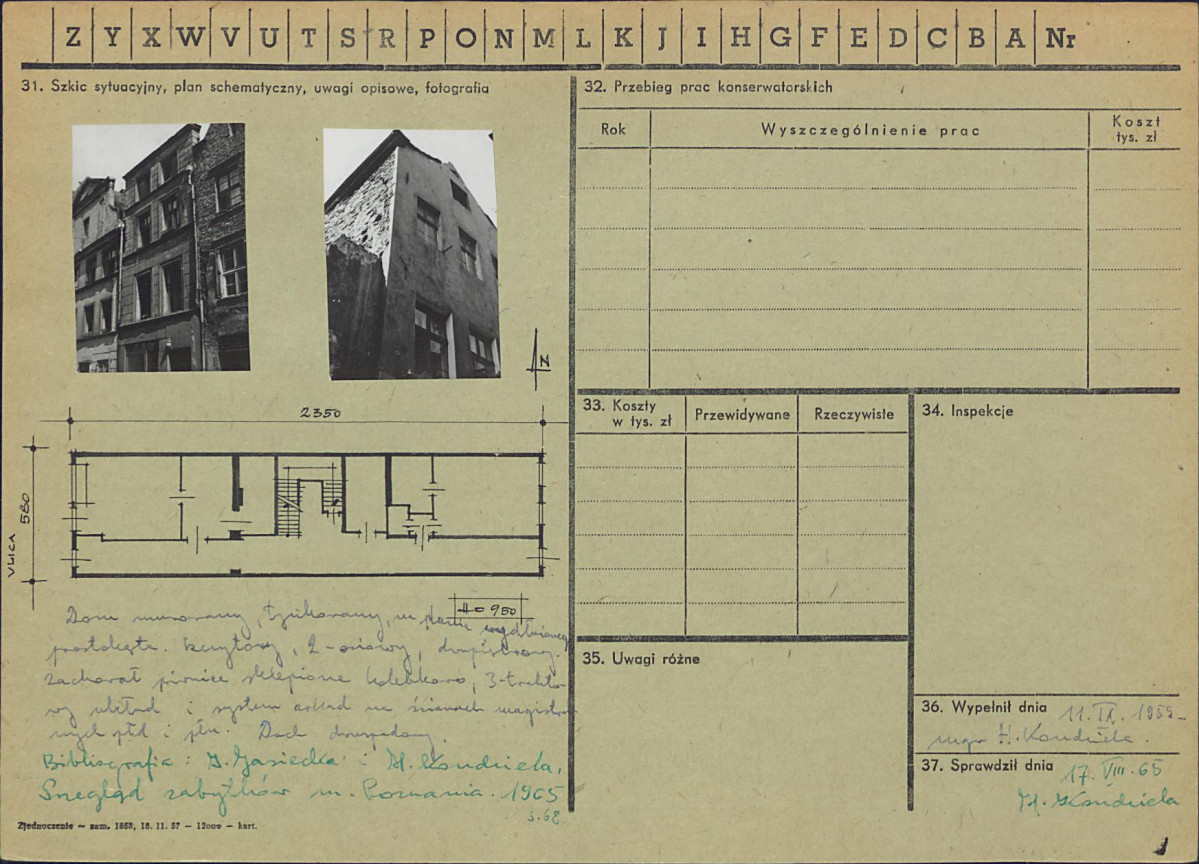 Z Y X W V U T S R P O N M L K J I H G F E D C B A Nr
31. Szkic sytuacyjny, plan schematyczny, uwagi opisowe, fotografia
N
2350
ULICA 580
H=950
Dom murowany, tynkowany, na planie wydłużonego
prostokąta. Szczytowy, 2-osiowy, dwupiętrowy.
Zachował piwnice sklepione kolebkowo, 3-trakto-
wy układ i system arkad na ścianach magistral-
nych płd i płn. Dach dwuspadowy.
Bibliografia: J. Gasiecka i H. Kondziela,
zabytków m. Poznania. 1965
s. 68
Zjednoczenie — zam. 1858, 18. 11. 57 — 12000 — kart.
32. Przebieg prac konserwatorskich
Rok Wyszczególnienie prac Koszt tys. zł
33. Koszty w tys. zł Przewidywane Rzeczywiste
34. Inspekcje
35. Uwagi różne
36. Wypełnił dnia 11. IX. 1959
mgr H. Kondziela.
37. Sprawdził dnia 17. VIII. 65
H. Kondziela